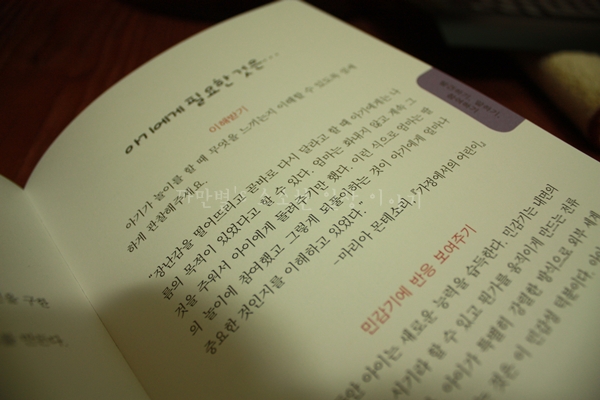 아기에게 필요한 것은…
이해받기
아기가 놀이를 할 때 무엇을 느끼는지 이해할 수 있도록 섬세
하게 관찰해주세요.
"장난감을 떨어뜨리고 곧바로 다시 달라고 할 때 아기에게는 나
름의 목적이 있었다고 할 수 있다. 엄마는 화내지 않고 계속 그
것을 주워서 아이에게 돌려주기만 했다. 이런 식으로 엄마는 딸
의 놀이에 참여했고 그렇게 되풀이하는 것이 아기에게 얼마나
중요한 것인지를 이해하고 있었다."
-마리아 몬테소리, 『가정에서의 어린이』
민감기에 반응 보여주기
민감기 아이는 새로운 능력을 습득한다. 민감기는 내면의
시기라 할 수 있고 뭔가를 움직이게 만드는 전류
아이가 특별히 강렬한 방식으로 외부 세계
것은 이 민감성 덕분이다.
을 구한
를 만든다.